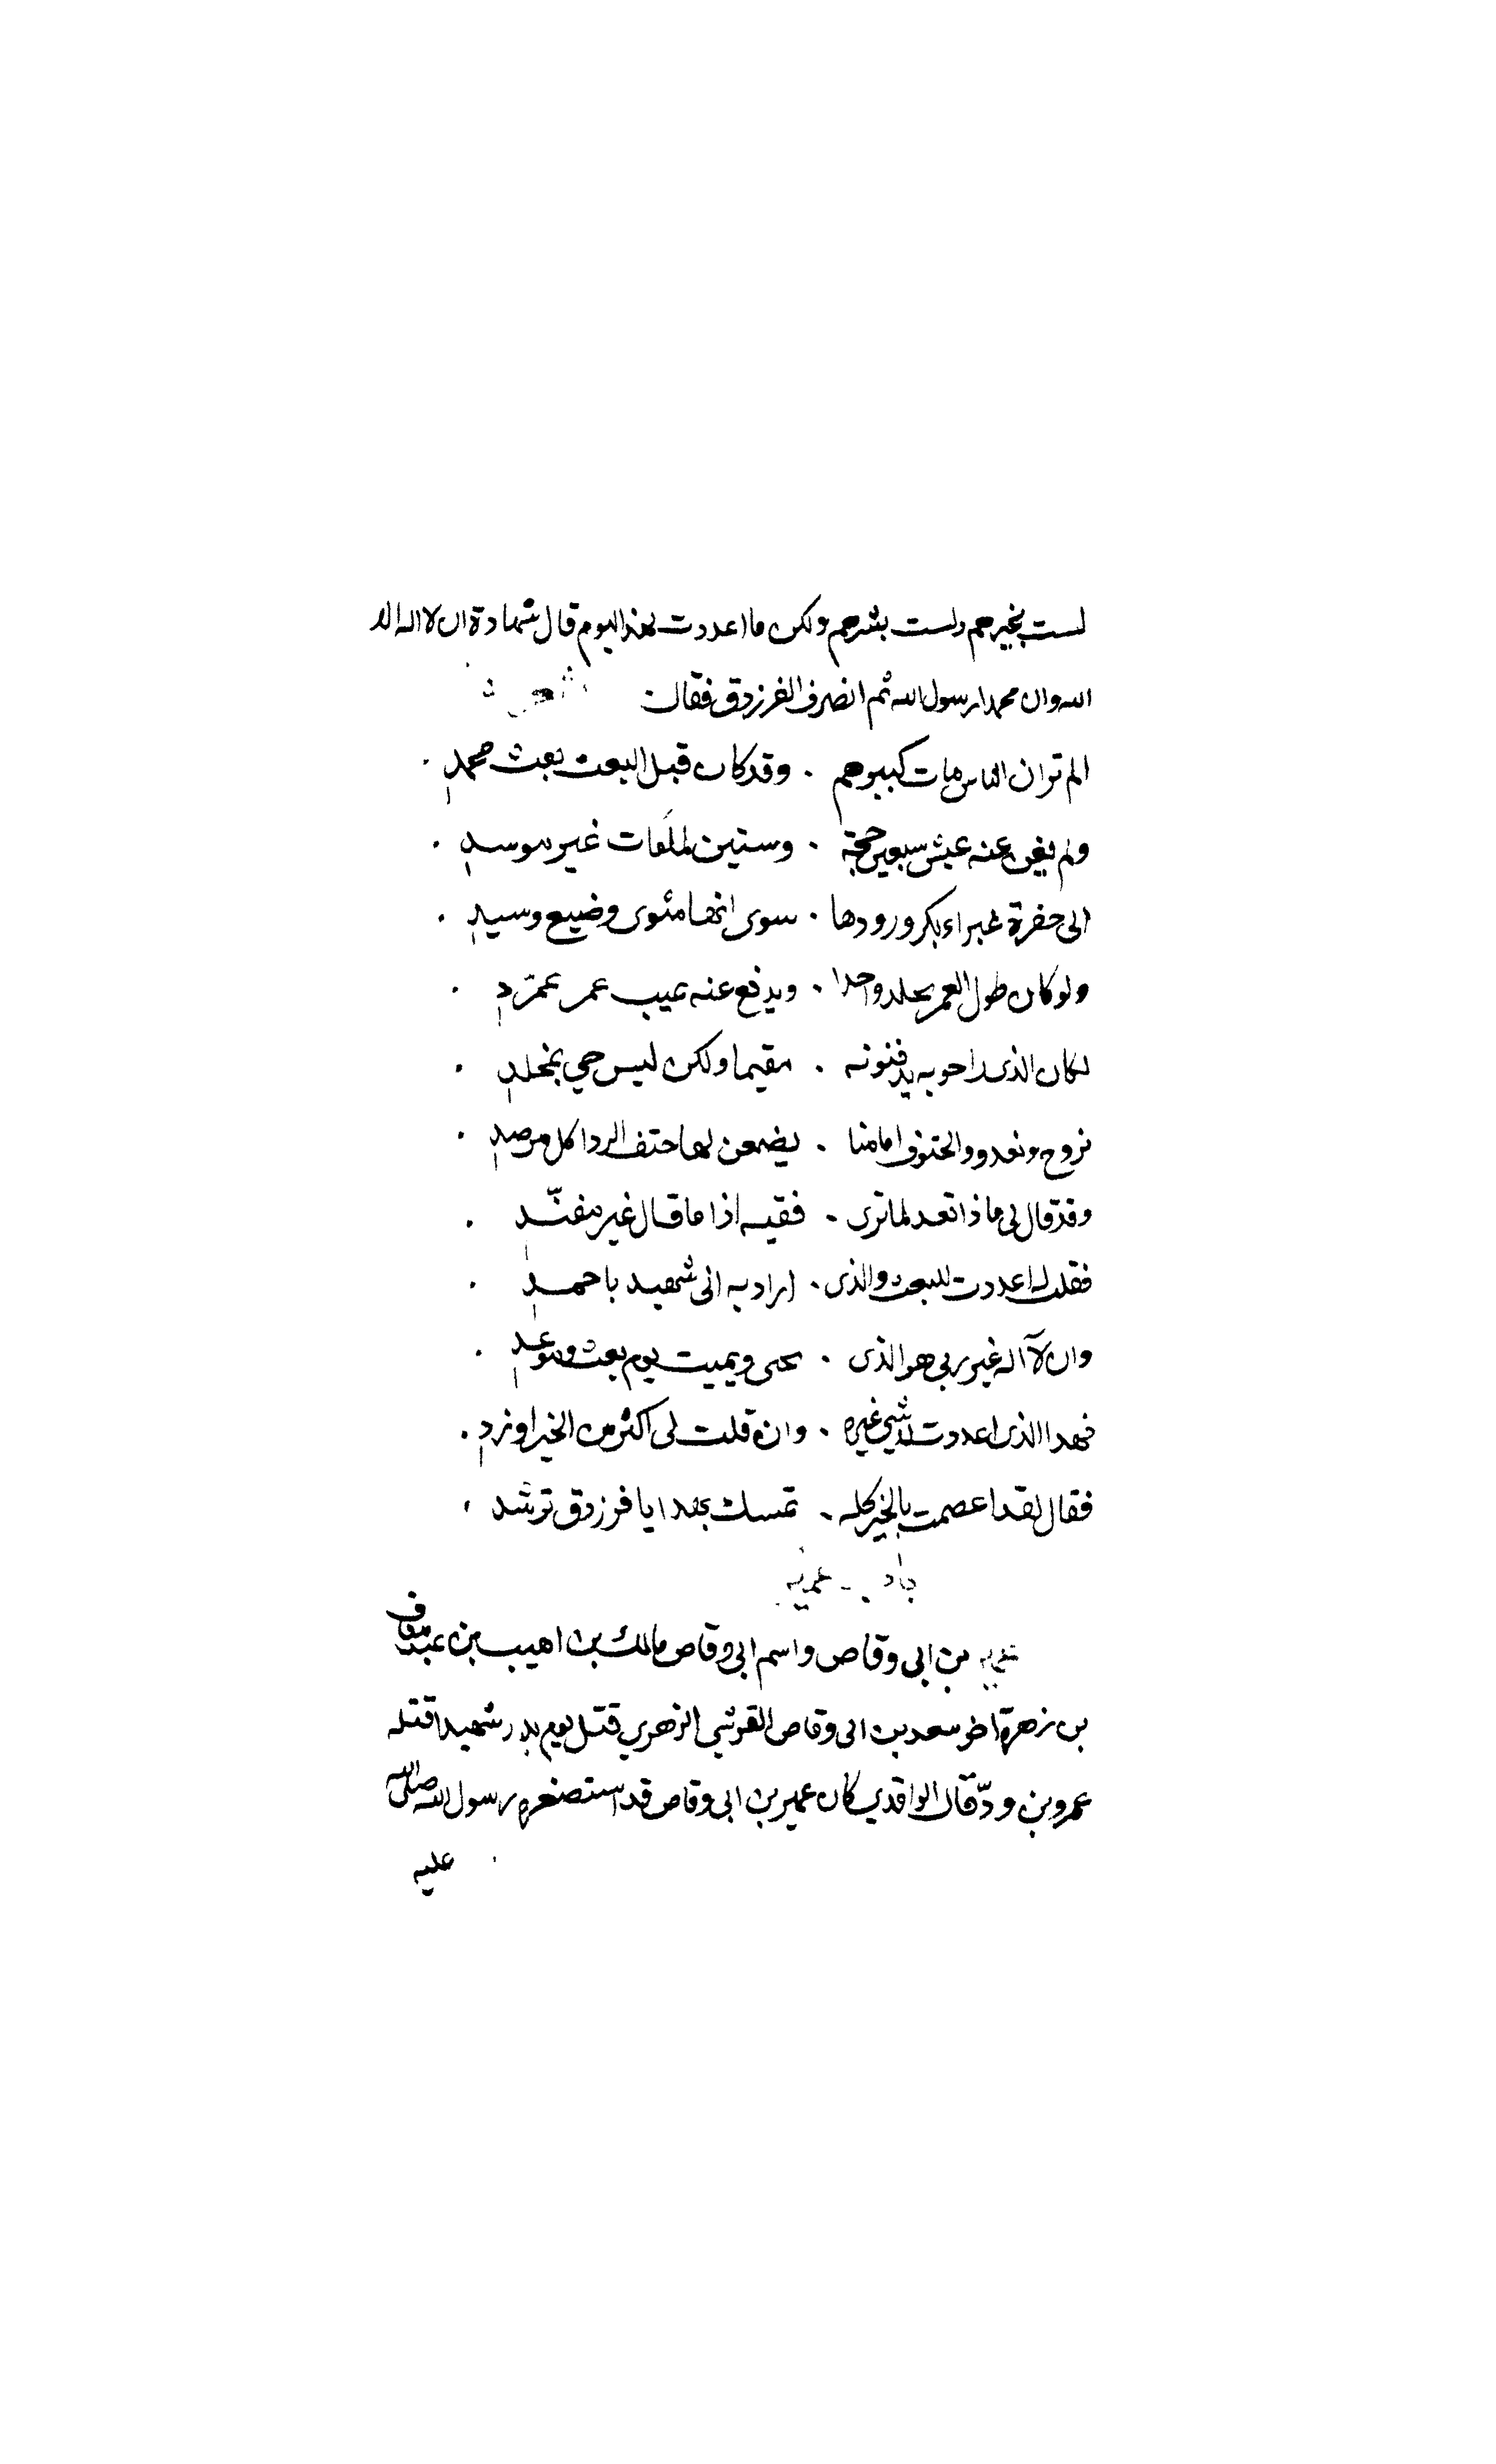 لست بخيرهم ولست بشرهم ولكن ما اعددت لهذا اليوم قال شهادة ان لا اله الا
الله وان محمدا رسول الله ثم انصرف الفرزدق فقال
الم تر ان الناس مات كبيرهم . وقد كان قبل البعث بعث محمد .
ولم يغن عنه عيش سبعين حجة . وستين لما مات غير موسد .
الى حفرة غبراء يكره ورودها . سوى انها مثوى وضيع وسيد .
ولو كان طول العمر يخلد واحدا . ويدفع عنه عيب عمر عمرد .
لكان الذى راحوا به يدفنونه . مقيما ولكن ليس حي بمخلد .
نروح ونغدو والحتوف امامنا . يضعن لها حتف الردا كل مرصد .
وقد قال لى ماذا تعد لما ترى . فقيه اذا ما قال غير مفنّد .
فقلت له اعددت للبعث والذى . اراد به انى شهيد باحمد .
وان لا اله غير ربى هو الذى . يحى ويميت يوم بعث وموعد .
فهذا الذى اعددت لا شي غيره . وان قلت لى اكثر من الخير او زد .
فقال لقد اعصمت بالخير كله . تمسك بهذا يا فرزدق ترشد .
باب عمير
عمير بن ابى وقاص واسم ابى وقاص مالك بن اهيب بن عبد مناف
بن زهرة اخو سعد بن ابى وقاص القرشي الزهري قتل يوم بدر شهيدا قتله
عمرو بن ودّ قال الواقدي كان عمير بن ابى وقاص قد استصغره رسول الله صلى الله
عليه